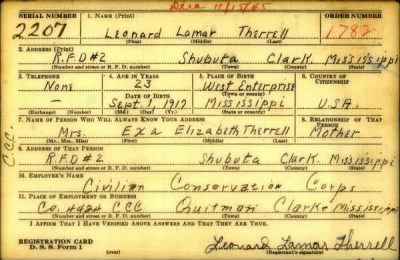 Dec 11/15/45
SERIAL NUMBER 1. NAME (Print) ORDER NUMBER
2207 Leonard Lamar Therrell 1782
(First) (Middle) (Last)
2. ADDRESS (Print)
R.F.D #2 Shubuta Clark. Mississippi
(Number and street or R. F. D. number) (Town) (County) (State)
3. TELEPHONE 4. AGE IN YEARS 5. PLACE OF BIRTH 6. COUNTRY OF CITIZENSHIP
None 23 West Enterprise
DATE OF BIRTH (Town or county)
— Sept. 1, 1917 Mississippi U.S.A.
(Exchange) (Number) (Mo.) (Day) (Yr.) (State or country)
7. NAME OF PERSON WHO WILL ALWAYS KNOW YOUR ADDRESS 8. RELATIONSHIP OF THAT PERSON
Mrs. Exa Elizabeth Therrell Mother
(Mr., Mrs., Miss) (First) (Middle) (Last)
9. ADDRESS OF THAT PERSON
R.F.D #2 Shubuta Clark. Mississippi
(Number and street or R. F. D. number) (Town) (County) (State)
10. EMPLOYER'S NAME
Civilian Conservation Corps
11. PLACE OF EMPLOYMENT OR BUSINESS
Co. #4424 CCC Quitman Clarke Mississippi
(Number and street or R. F. D. number) (Town) (County) (State)
I AFFIRM THAT I HAVE VERIFIED ABOVE ANSWERS AND THAT THEY ARE TRUE.
REGISTRATION CARD
D. S. S. Form 1 Leonard Lamar Therrell
(Registrant's signature)
CCC